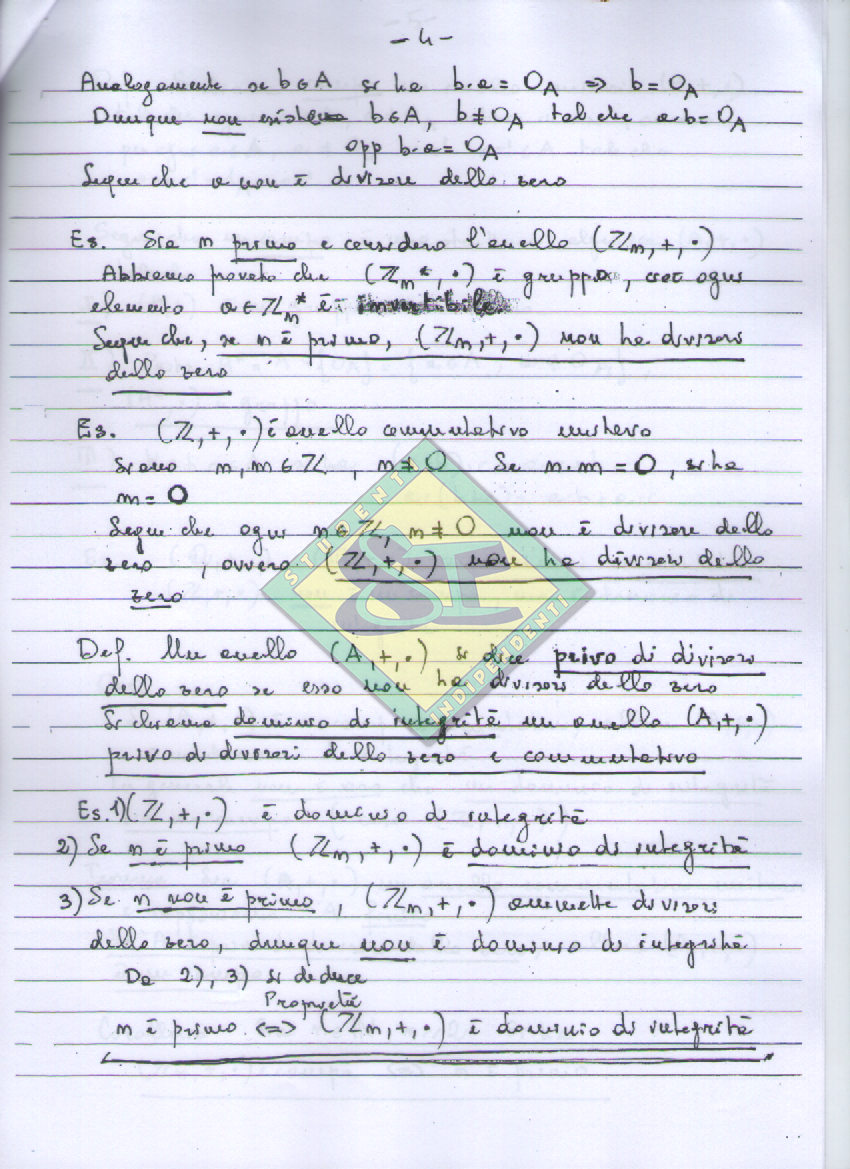 - 4 -
Analogamente se b ∈ A si ha b·a = 0_A ⇒ b = 0_A
Dunque non esiste b ∈ A, b ≠ 0_A tal che a·b = 0_A
opp b·a = 0_A
Segue che a non è divisore dello zero
Es. Sia n primo e considero l'anello (ℤ_n, +, ·)
Abbiamo provato che (ℤ_n*, ·) è gruppo, cioè ogni
elemento a ∈ ℤ_n* è invertibile.
Segue che, se n è primo, (ℤ_n, +, ·) non ha divisori
dello zero
Es. (ℤ, +, ·) è anello commutativo unitario
Siano n, m ∈ ℤ, n ≠ 0 Se n·m = 0, si ha
m = 0
Segue che ogni n ∈ ℤ, n ≠ 0 non è divisore dello
zero, ovvero (ℤ, +, ·) non ha divisori dello
zero
STUDENTI
INDIPENDENTI
Def. Un anello (A, +, ·) si dice privo di divisori
dello zero se esso non ha divisori dello zero
Si chiama dominio di integrità un anello (A, +, ·)
privo di divisori dello zero e commutativo
Es. 1) (ℤ, +, ·) è dominio di integrità
2) Se n è primo (ℤ_n, +, ·) è dominio di integrità
3) Se n non è primo, (ℤ_n, +, ·) ammette divisori
dello zero, dunque non è dominio di integrità
Da 2), 3) si deduce
Proprietà
n è primo <=> (ℤ_n, +, ·) è dominio di integrità